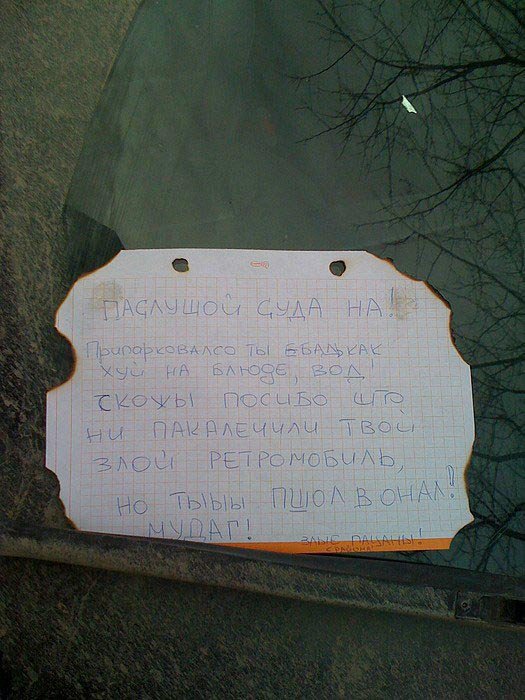 ПАСЛУЩОЙ СУДА НА!
Припорковалсо ты ебацькак
хуй на блюде, вод!
скожы посибо што
ни пакалечили твой
злой ретромобиль,
но тыыы пшол в онал!
МУДАГ! злые пацаны!
с района